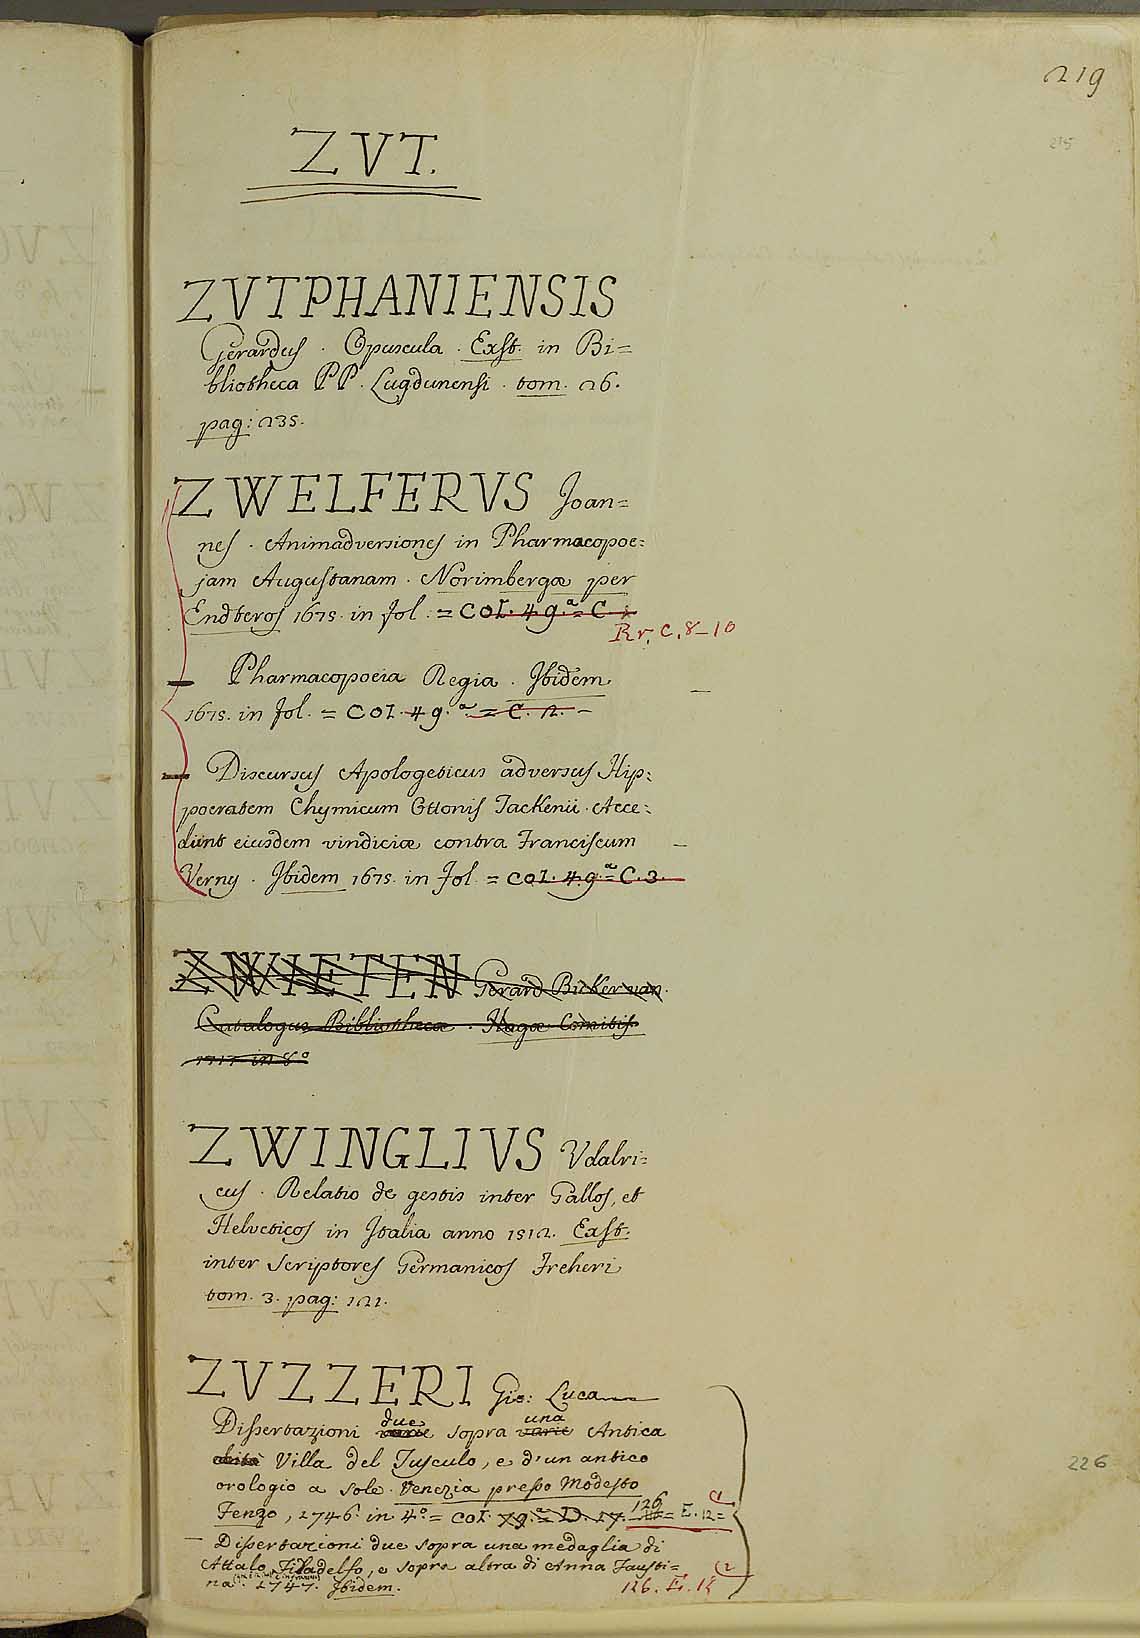 219
215
ZVT.
ZVTPHANIENSIS
Gerardus . Opuscula . Exst. in Bi=
bliotheca PP. Lugdunensi . tom. 26.
pag: 235.
ZWELFERVS Joan=
nes . Animadversiones in Pharmacopoe=
jam Augustanam . Norimbergæ per
Endteros 1675. in fol. = COL. 49.a = C. 1.
Rr. C. 8-10
— Pharmacopoeia Regia . Ibidem
1675. in fol. = COL. 49.a = C. 2. —
— Discursus Apologeticus adversus Hip=
pocratem Chymicum Ottonis Tackenii . Acce=
dunt eiusdem vindiciæ contra Franciscum
Verny . Ibidem 1675. in fol. = COL. 49.a = C. 3.
ZWIETEN Gerard Bicker van.
Catalogus Bibliothecæ . Hagæ Comitis
1717 in 8o
ZWINGLIVS Vdalri=
cus . Relatio de gestis inter Gallos, et
Helveticos in Italia anno 1512. Exst.
inter Scriptores Germanicos Freheri
tom. 3. pag: 121.
ZVZZERI Gio: Luca
Dissertazioni varie due sopra varie una Antica
Villa del Tusculo, e d'un antico
orologio a sole . Venezia presso Modesto
Fenzo, 1746. in 4o. = COL. 79.a = D. 17. 126 = E. 12 =
— Dissertazioni due sopra una medaglia di
Attalo Filadelfo, e sopra altra di Anna Fausti=
na . 1747. Ibidem.
126. E. 12
226